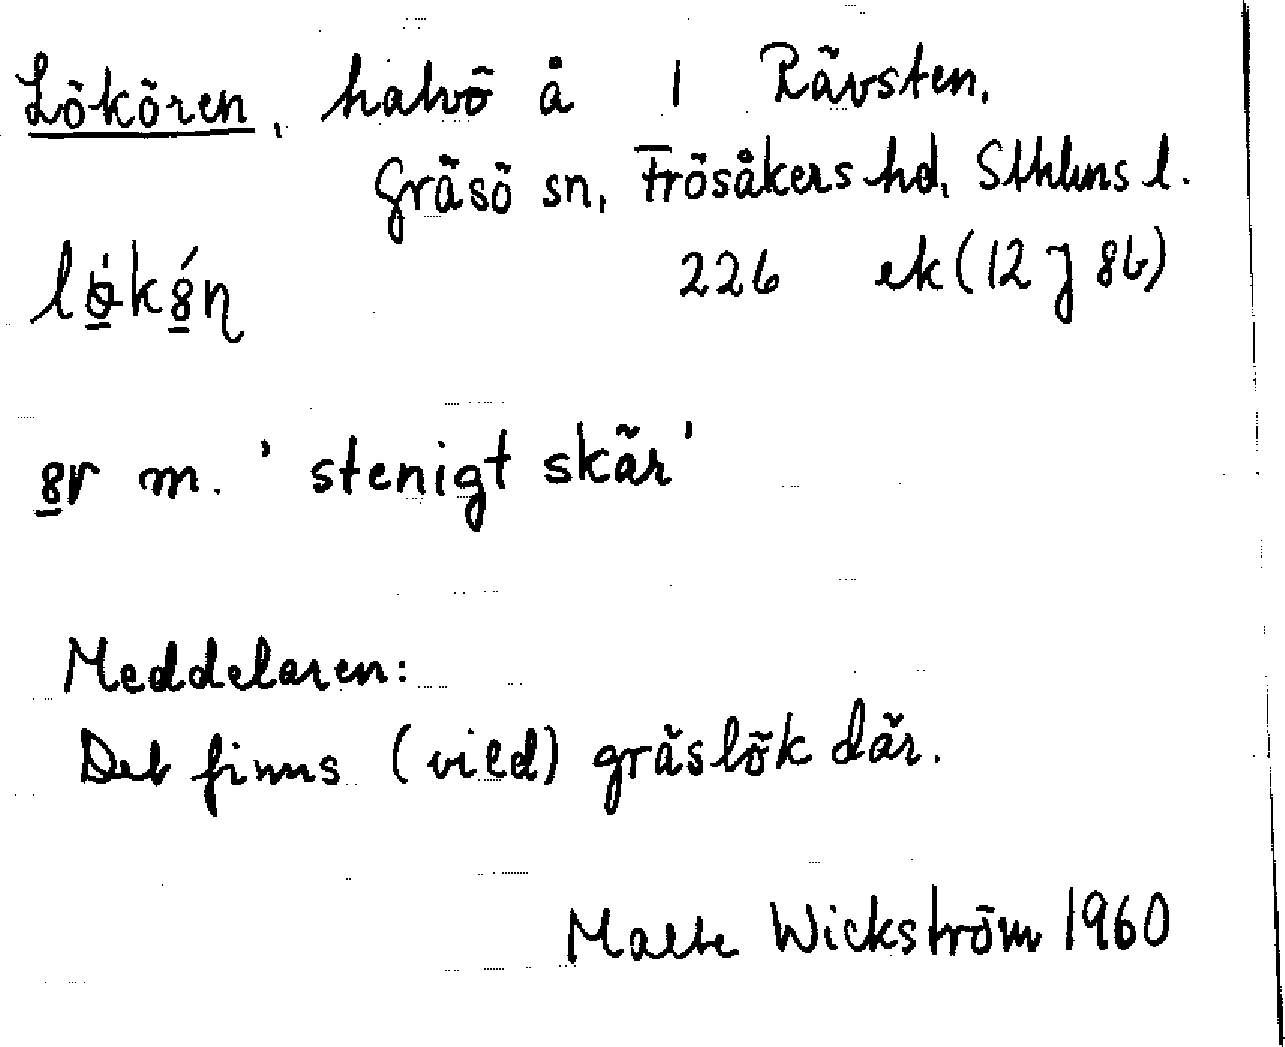 Lökören, halvö å 1 Rävsten,
Gräsö sn, Frösåkers hd, Sthlms l.
226 ek (12 J 8b)
m. 'stenigt skär'
Meddelaren:
Det finns (vild) gräslök där.
Malte Wickström 1960